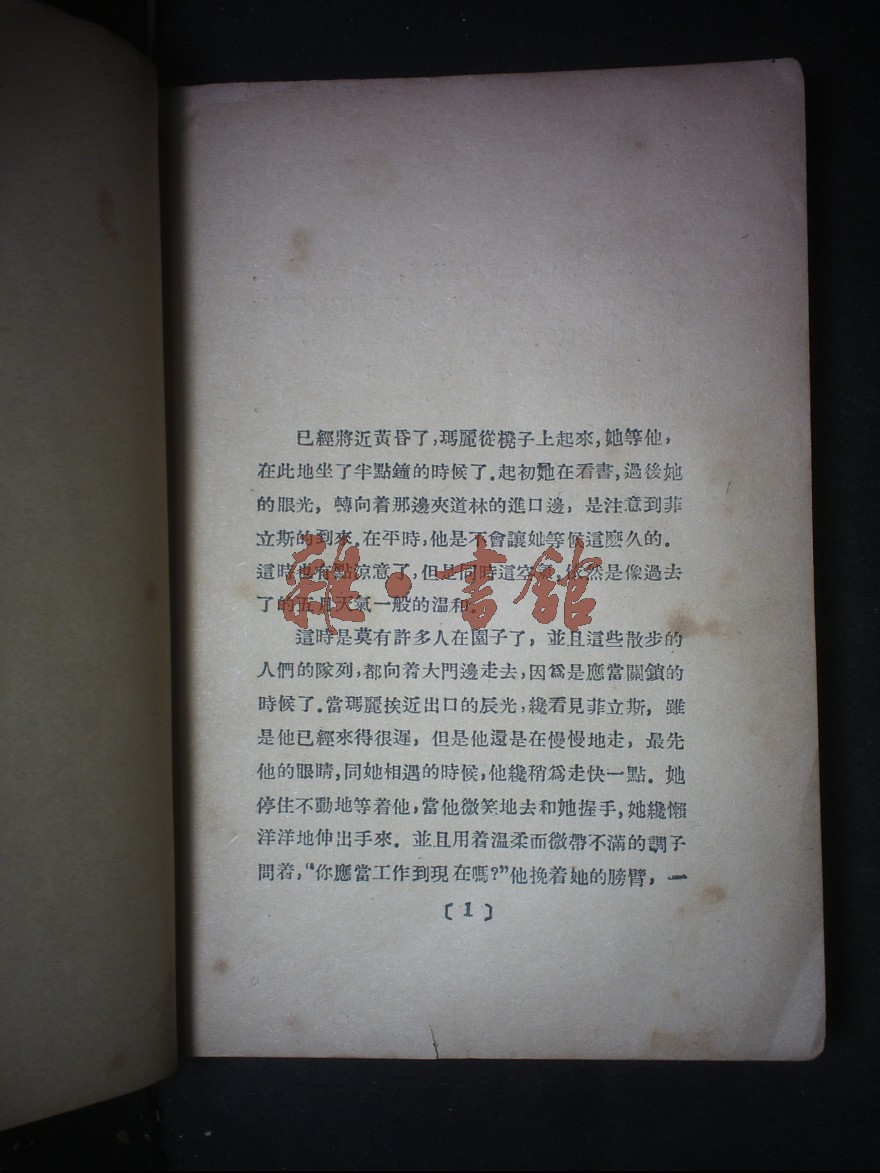 已經將近黃昏了，瑪麗從櫈子上起來，她等他，
在此地坐了半點鐘的時候了．起初她在看書，過後她
的眼光，轉向着那邊夾道林的進口邊，是注意到菲
立斯的到來．在平時，他是不會讓她等候這麽久的．
這時也有點涼意了，但是同時這空氣，依然是像過去
了的五月天氣一般的温和．
這時是莫有許多人在園子了，並且這些散步的
人們的隊列，都向着大門邊走去，因爲是應當關鎖的
時候了．當瑪麗挨近出口的辰光，纔看見菲立斯，雖
是他已經來得很遲，但是他還是在慢慢地走，最先
他的眼睛，同她相遇的時候，他纔稍爲走快一點．她
停住不動地等着他，當他微笑地去和她握手，她纔懶
洋洋地伸出手來．並且用着温柔而微帶不滿的調子
問着，“你應當工作到現在嗎?”他挽着她的膀臂，一
〔1〕
雜·書館